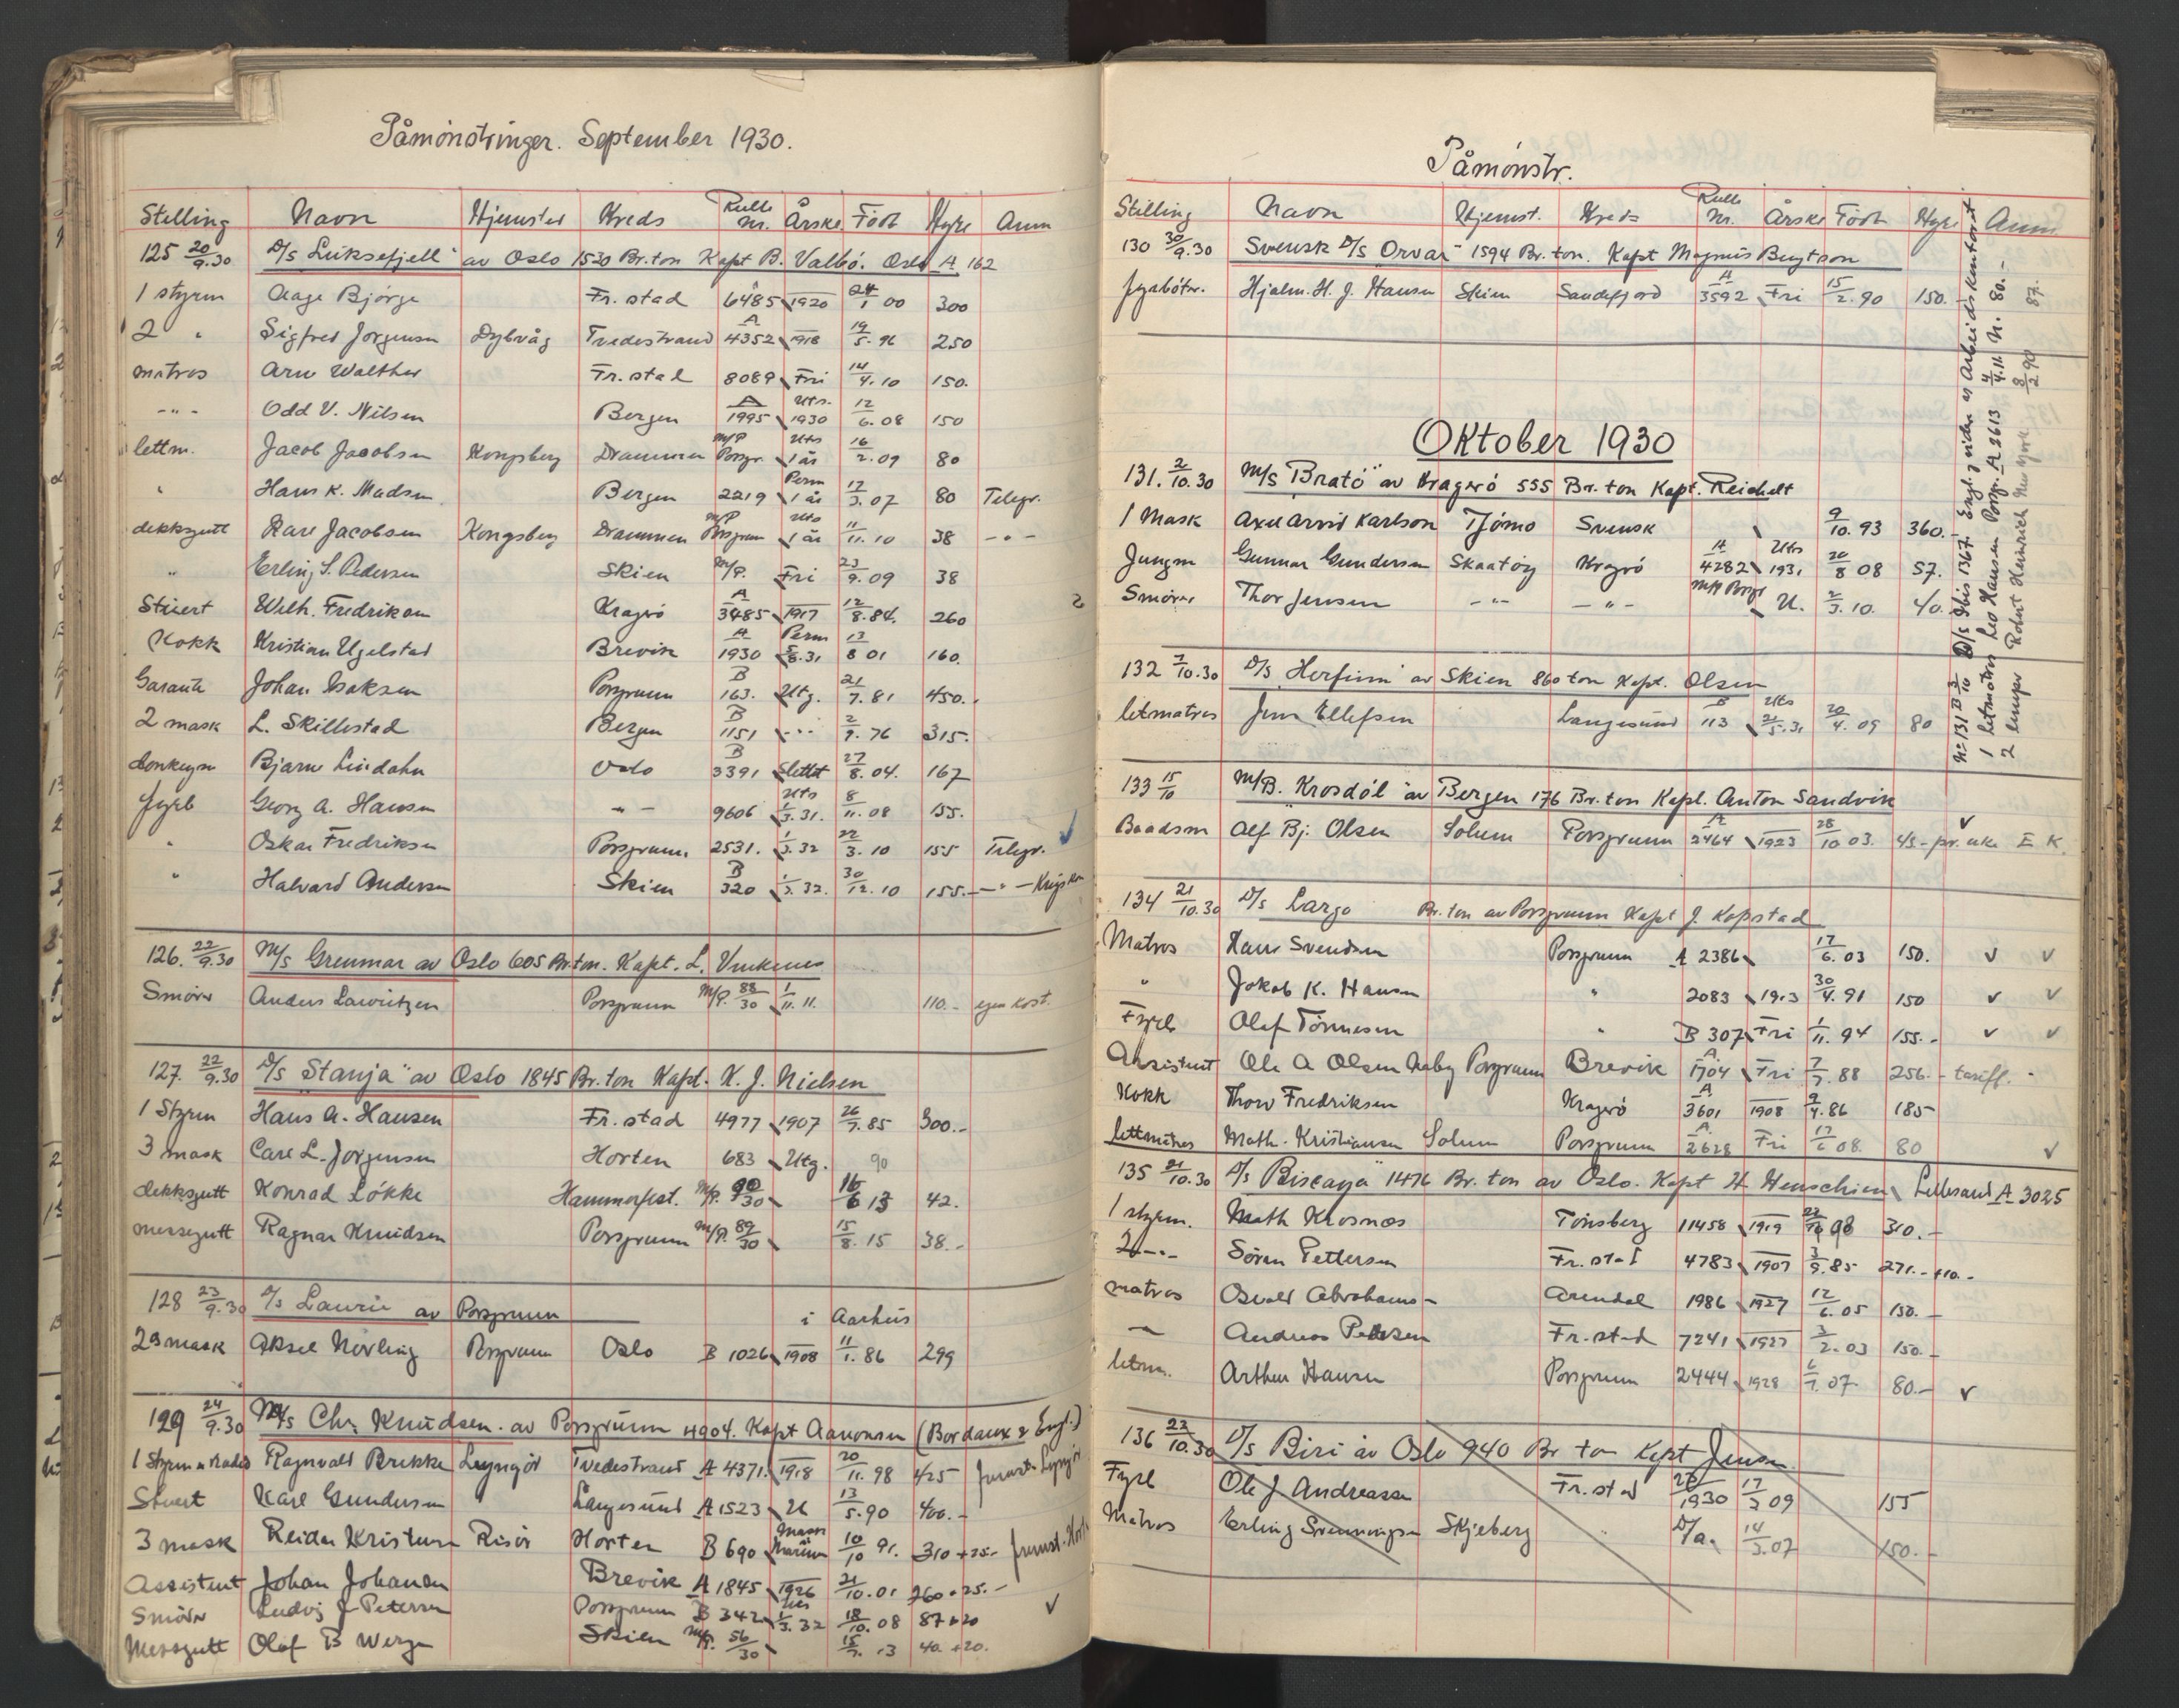 Påmönstringer. September 1930.
Stilling Navn Hjemsted Kreds Rulle Nr. Årskl Födt Hyre Anm
125 20/9.30 D/s "Luksefjell" av Oslo 1530 Br.ton Kapt B. Valbö. Oslo A 162
1 styrm Aage Björge Fr.stad A 6485 1920 24/1 00 300
2 " Sigfred Jörgensen Dybvåg Tvedestrand A 4352 1918 19/5. 96 250
matros Arne Walther Fr.stad 8089 Fri 14/4. 10 150.
-"- Odd V. Nilsen Bergen A 1995 Uts. 1930 12/6. 08 150
lettm. Jacob Jacobsen Kongsberg Drammen M/P Porsgr. Uts 1 år 16/2. 09 80
" Hans K. Madsen Bergen 2219 Perm 1 år 12/3. 07 80 Telegr.
dekksgutt Kåre Jacobsen Kongsberg Drammen M/P Porsgrunn Uts 1 år 11/11. 10 38 -"-
" Erling S. Pedersen Skien M/P. Fri 23/9. 09 38
Stuert Wilh. Fredriksen Kragerö A 3485 1917 12/8. 84. 260
Kokk Kristian Ugelstad Brevik A 1930 Perm 5/8. 31 13/8 01 160.
Garante Johan Isaksen Porsgrunn B 163. Utg. 21/7. 81 450.
2 mask L. Skillestad Bergen B 1151 -"- 2/9. 76 315.
donkeym Bjarne Lindahn Oslo B 3391 Slettet 27/8. 04. 167
fyrb Georg A. Hansen -"- 9606 Uts 1/3. 31. 8/11. 08 155.
" Oskar Fredriksen Porsgrunn 2531. 1/3. 32 22/3. 10 155 Telegr.
" Halvard Andersen Skien B 320 1/3. 32. 30/12. 10 155.- -"-
126. 22/9.30 M/s Grenmar av Oslo 605 Br.ton. Kapt. L.
Smörer Anders Lawritzen Porsgrunn M/P. 88/30 1/11. 11. 110.- egen kost.
127. 22/9.30 D/s "Stanja" av Oslo 1845 Br.ton Kapt. K. J. Nielsen
1 Styrm Hans A. Hansen Fr.stad 4977 1907 26/7. 85 300.-
3 mask Carl L. Jörgensen Horten 683 Utg. 90
dekksgutt Konrad Lökke Hammerfest. M/P. 90/30 16/6 13 42.
messegutt Ragnar Knudsen Porsgrunn M/P. 89/30 15/8. 15 38.-
128 23/9.30 D/s Laurie av Porsgrunn i Aarhus
2ð mask Aksel Norling Porsgrunn Oslo B 1026 1908 11/1. 86 299
129 24/9.30 M/s Chr. Knudsen. av Porsgrunn 4904. Kapt Aanonsen (Bordaux & Engl.)
1 Styrm Ragnvald Brekke Lyngör Tvedestrand A 4371. 1918 20/11. 98 425
Stuert Karl Gundersen Langesund A 1523 U 13/5. 90 400.-
3 mask Reidar Kristensen Risör Horten B 690 10/10 91. 310 + 25.-
Assistent Johan Johansen Brevik A 1845 1926 21/10. 01 260 + 25.-
Smörer Ludvig J Petersen Porsgrunn B 342 Uts 1/3. 32 18/10. 08 87 + 20
Messgutt Olaf B Werge Skien M/P. 56/30 15/7. 13 40. + 20.
Påmönstr.
Stilling Navn Hjemst. Kreds Rulle nr. Årskl Födt Hyre Anm.
130 30/9.30 Svensk D/s "Orvar" 1594 Br.ton. Kapt Magnus Bengtson
fyrböter. Hjalm. H. J. Hansen Skien Sandefjord A 3592 Fri 15/2. 90 150.-
Oktober 1930
131. 2/10.30 M/s "Bratö" av Kragerö 555 Br.ton Kapt. Reichelt
1 Mask Axel Arvid Karlson Tjömo Svensk 9/10. 93 360.-
Jungm Gunnar Gundersen Skaatöy Kragrö A 4282 Uts 1931 20/8 08 57.
Smörer Thor Jensen -"- -"- M/P Porsgr U. 2/3. 10. 40.
132 7/10.30 D/s "Herfinn" av Skien 860 ton Kapt. Olsen
letmatros Jens Ellefsen Langesund B 113 Uts 21/5. 31 20/4. 09 80
133 15/10 M/B. "Krosdöl" av Bergen 176 Br.ton Kapt. Anton Sandvik
Baadsm Alf Bj. Olsen Solum Porsgrunn A 2464 1923 28/10 03. 45.- pr. uke E K.
134 21/10.30 D/s Largo Br.ton av Porsgrunn Kapt J. Kopstad
Matros Hans Svendsen Porsgrunn A 2386 17/6. 03 150.
" Jokob K. Hansen " 2083 1913 30/4. 91 150
Fyrb Olaf Tönnesen " B 307 Fri 1/11. 94 155.-
Assistent Ole A Olsen Aaby Porsgrunn Brevik A 1704 Fri 7/7. 88 256.- tariff.
Kokk Thorv Fredriksen Kragerö A 3601 1908 9/4. 86 185
lettmatros Math. Kristiansen Solum Porsgrunn A 2628 Fri 17/6 08. 80
135 21/10.30 D/s "Biscaya" 1476 Br.ton av Oslo. Kapt H Henschien Lillesand A 3025
1 styrm. Math Krosnæs Tönsberg 11458 1919 98 310.-
2 -"- Sören Pettersen Fr.stad 4783 1907 3/9. 85 271.- +10.-
matros Osvald Abrahams- Arendal 1986 1927 12/6. 05 150.-
-"- Andreas Pettersen Fr.stad 7241 1927 3/2. 03 150.-
letm. Arthur Hansen Porsgrunn 2444 1928 6/7. 07. 80.-
136 23/10.30 D/s Biri av Oslo 940 Br ton Kapt Jensen
Fyrb Ole J Andreassen Fr.stad 1930 17/2 09 155
Matros Erling Svenningsen Skjeberg " D/a. 14/3. 07 150.-
Nr. 131 B 3/10 D/s Ibis 1367. Engl. gjennem Arbeidskontoret
1 letmatros Leo Hansen Porsgr. A 2613 4/4. 11. U. 80.-
2 lemper Robert Heinrich New York. 8/2 90 87.-